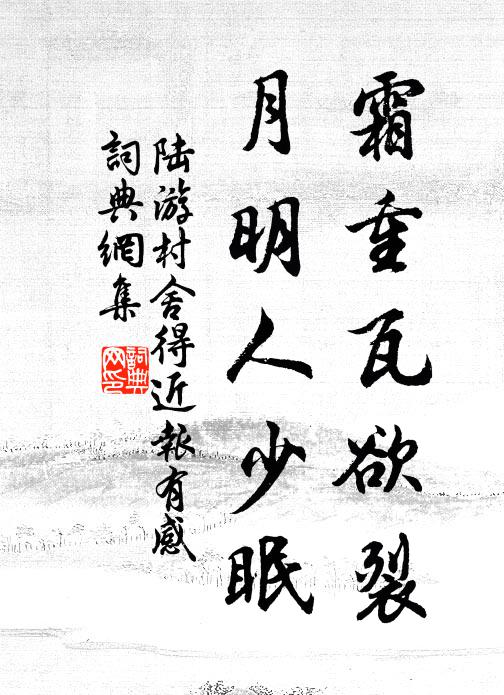 霜重瓦欲裂
月明人少眠
陆游村舍得近报有感
詞典網集
詞典网印